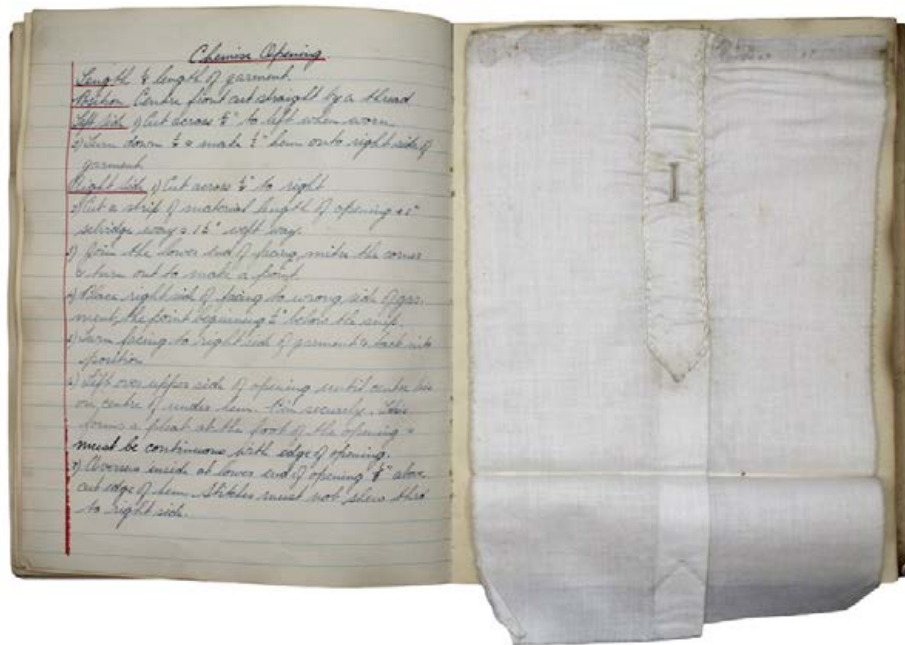 Chemise Opening
Length ¼ length of garment
Position Centre front cut straight by a thread
Left side 1) Cut across ½" to left when worn
2) Turn down & make ½" hem onto right side of
garment
Right Side 1) Cut across ½" to right
2) Cut a strip of material length of opening + 1"
selvidge way & 1½" weft way.
3) Join the lower end of facing, mitre the corner
& turn out to make a point.
4) Place right side of facing to wrong side of gar-
ment, the point beginning ½" below the snip.
5) Turn facing to right side of garment & tack into
position
6) Lift over upper side of opening until centre lies
on centre of under hem. Pin securely. This
forms a pleat at the foot of the opening &
must be continuous with edge of opening.
7) Oversew inside at lower end of opening ⅛" above
cut edge of hem. Stitches must not show thro'
to right side.